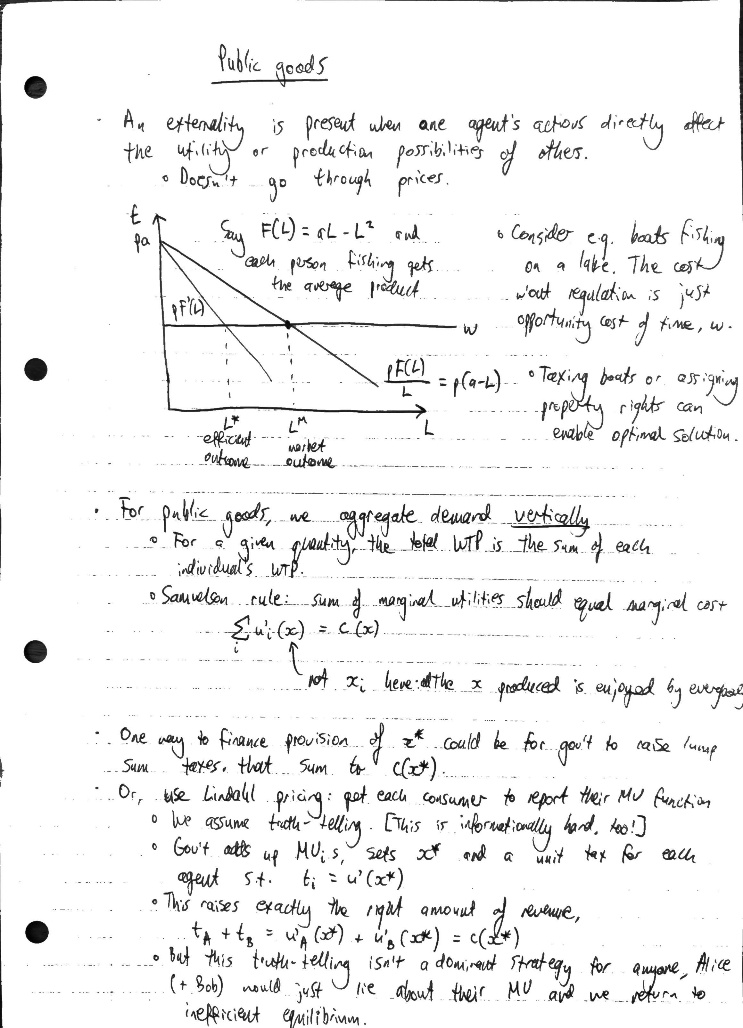 Public goods
· An externality is present when one agent's actions directly affect
the utility or production possibilities of others.
∘ Doesn't go through prices.
£
pa
Say F(L) = aL - L² and
each person fishing gets
the average product
∘ Consider e.g. boats fishing
on a lake. The cost
w'out regulation is just
opportunity cost of time, w.
pF'(L)
w
pF(L)/L = p(a-L)
∘ Taxing boats or assigning
property rights can
enable optimal solution.
L*
efficient
outcome
Lᴹ
market
outcome
L
· For public goods, we aggregate demand vertically
∘ For a given quantity, the total WTP is the sum of each
individual's WTP.
∘ Samuelson rule: sum of marginal utilities should equal marginal cost
∑ᵢ u'ᵢ(x) = c(x)
not xᵢ here: all the x produced is enjoyed by everybody
· One way to finance provision of x* could be for gov't to raise lump
sum taxes. that sum to c(x*).
· Or, use Lindahl pricing: get each consumer to report their MU function
∘ We assume truth-telling. [This is informationally hard, too!]
∘ Gov't adds up MUᵢs, sets x* and a unit tax for each
agent s.t. tᵢ = u'(x*)
∘ This raises exactly the right amount of revenue,
t_A + t_B = u'_A(x*) + u'_B(x*) = c(x*)
∘ But this truth-telling isn't a dominant strategy for anyone, Alice
(+ Bob) would just lie about their MU and we return to
inefficient equilibrium.